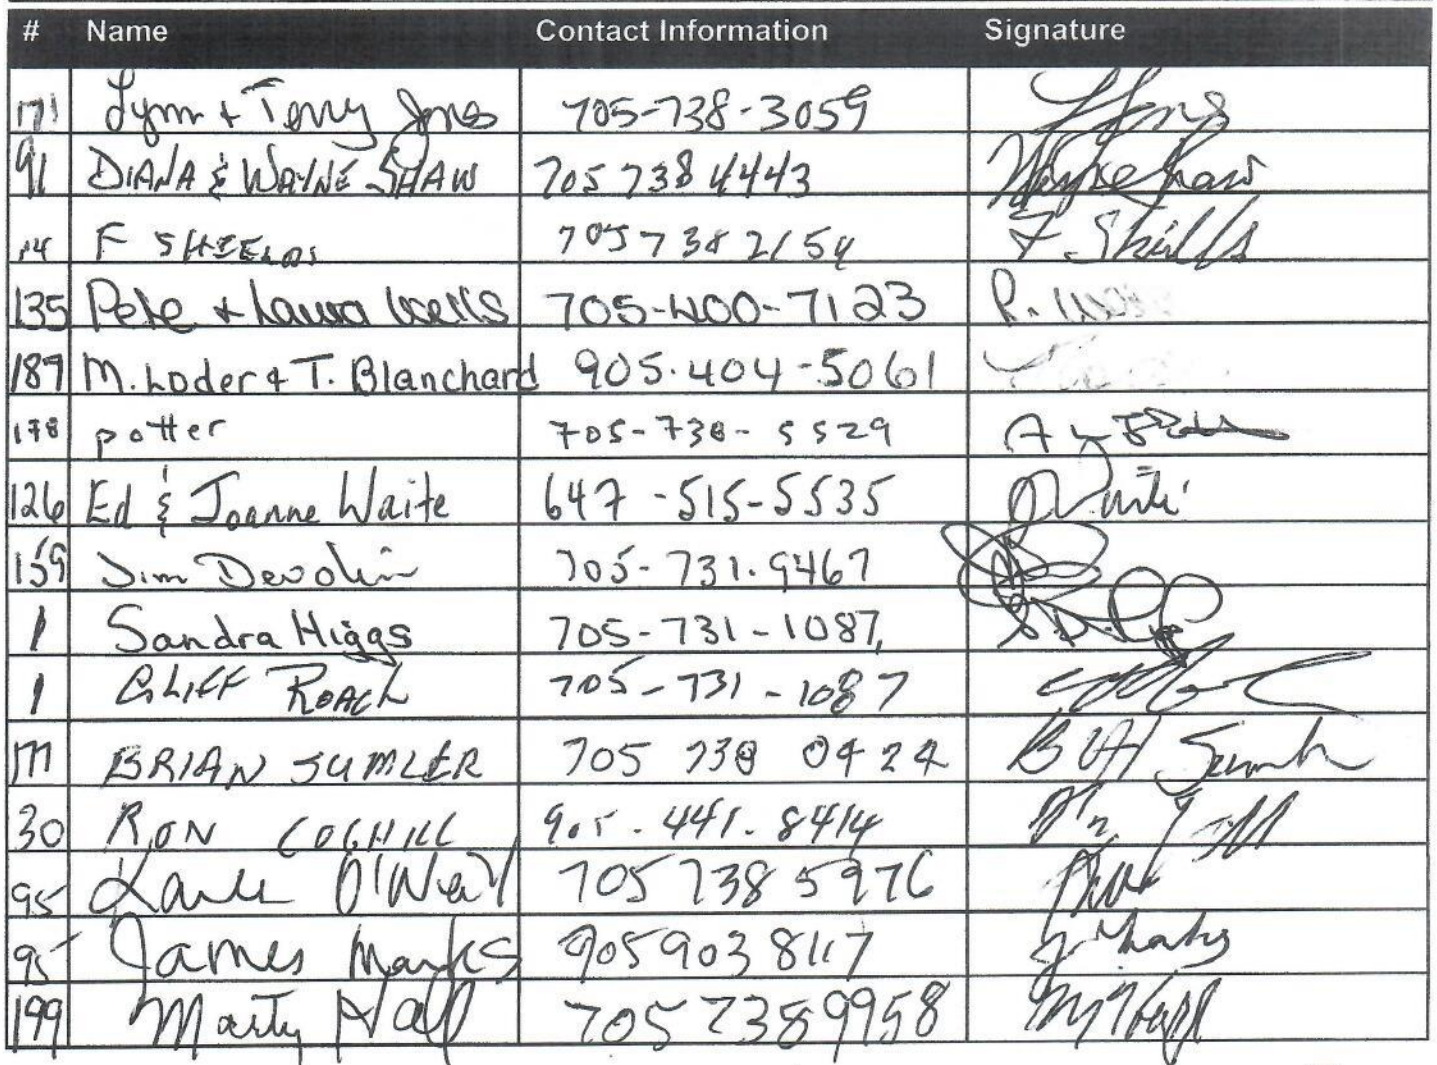 # Name Contact Information Signature
171 Lynn + Terry Jones 705-738-3059 L Jones
91 DIANA & WAYNE SHAW 705 738 4443 Wayne Shaw
14 F SHIELDS 705 738 2154 F. Shields
135 Pete + Laura Wells 705-400-7123 P. Wells
187 M. Loder & T. Blanchard 905.404-5061
178 potter 705-738-5529
126 Ed & Joanne Waite 647-515-5535 J Waite
159 Jim Devolin 705-731.9467
1 Sandra Higgs 705-731-1087,
1 CLIFF ROACH 705-731-1087
171 BRIAN SUMLER 705 738 0424
30 RON COGHILL 905.441.8414
95 O'Neil 705 738 5976
95 James Marks 905 903 8117 J Marks
199 Marty Hall 705 738 9958 M Hall